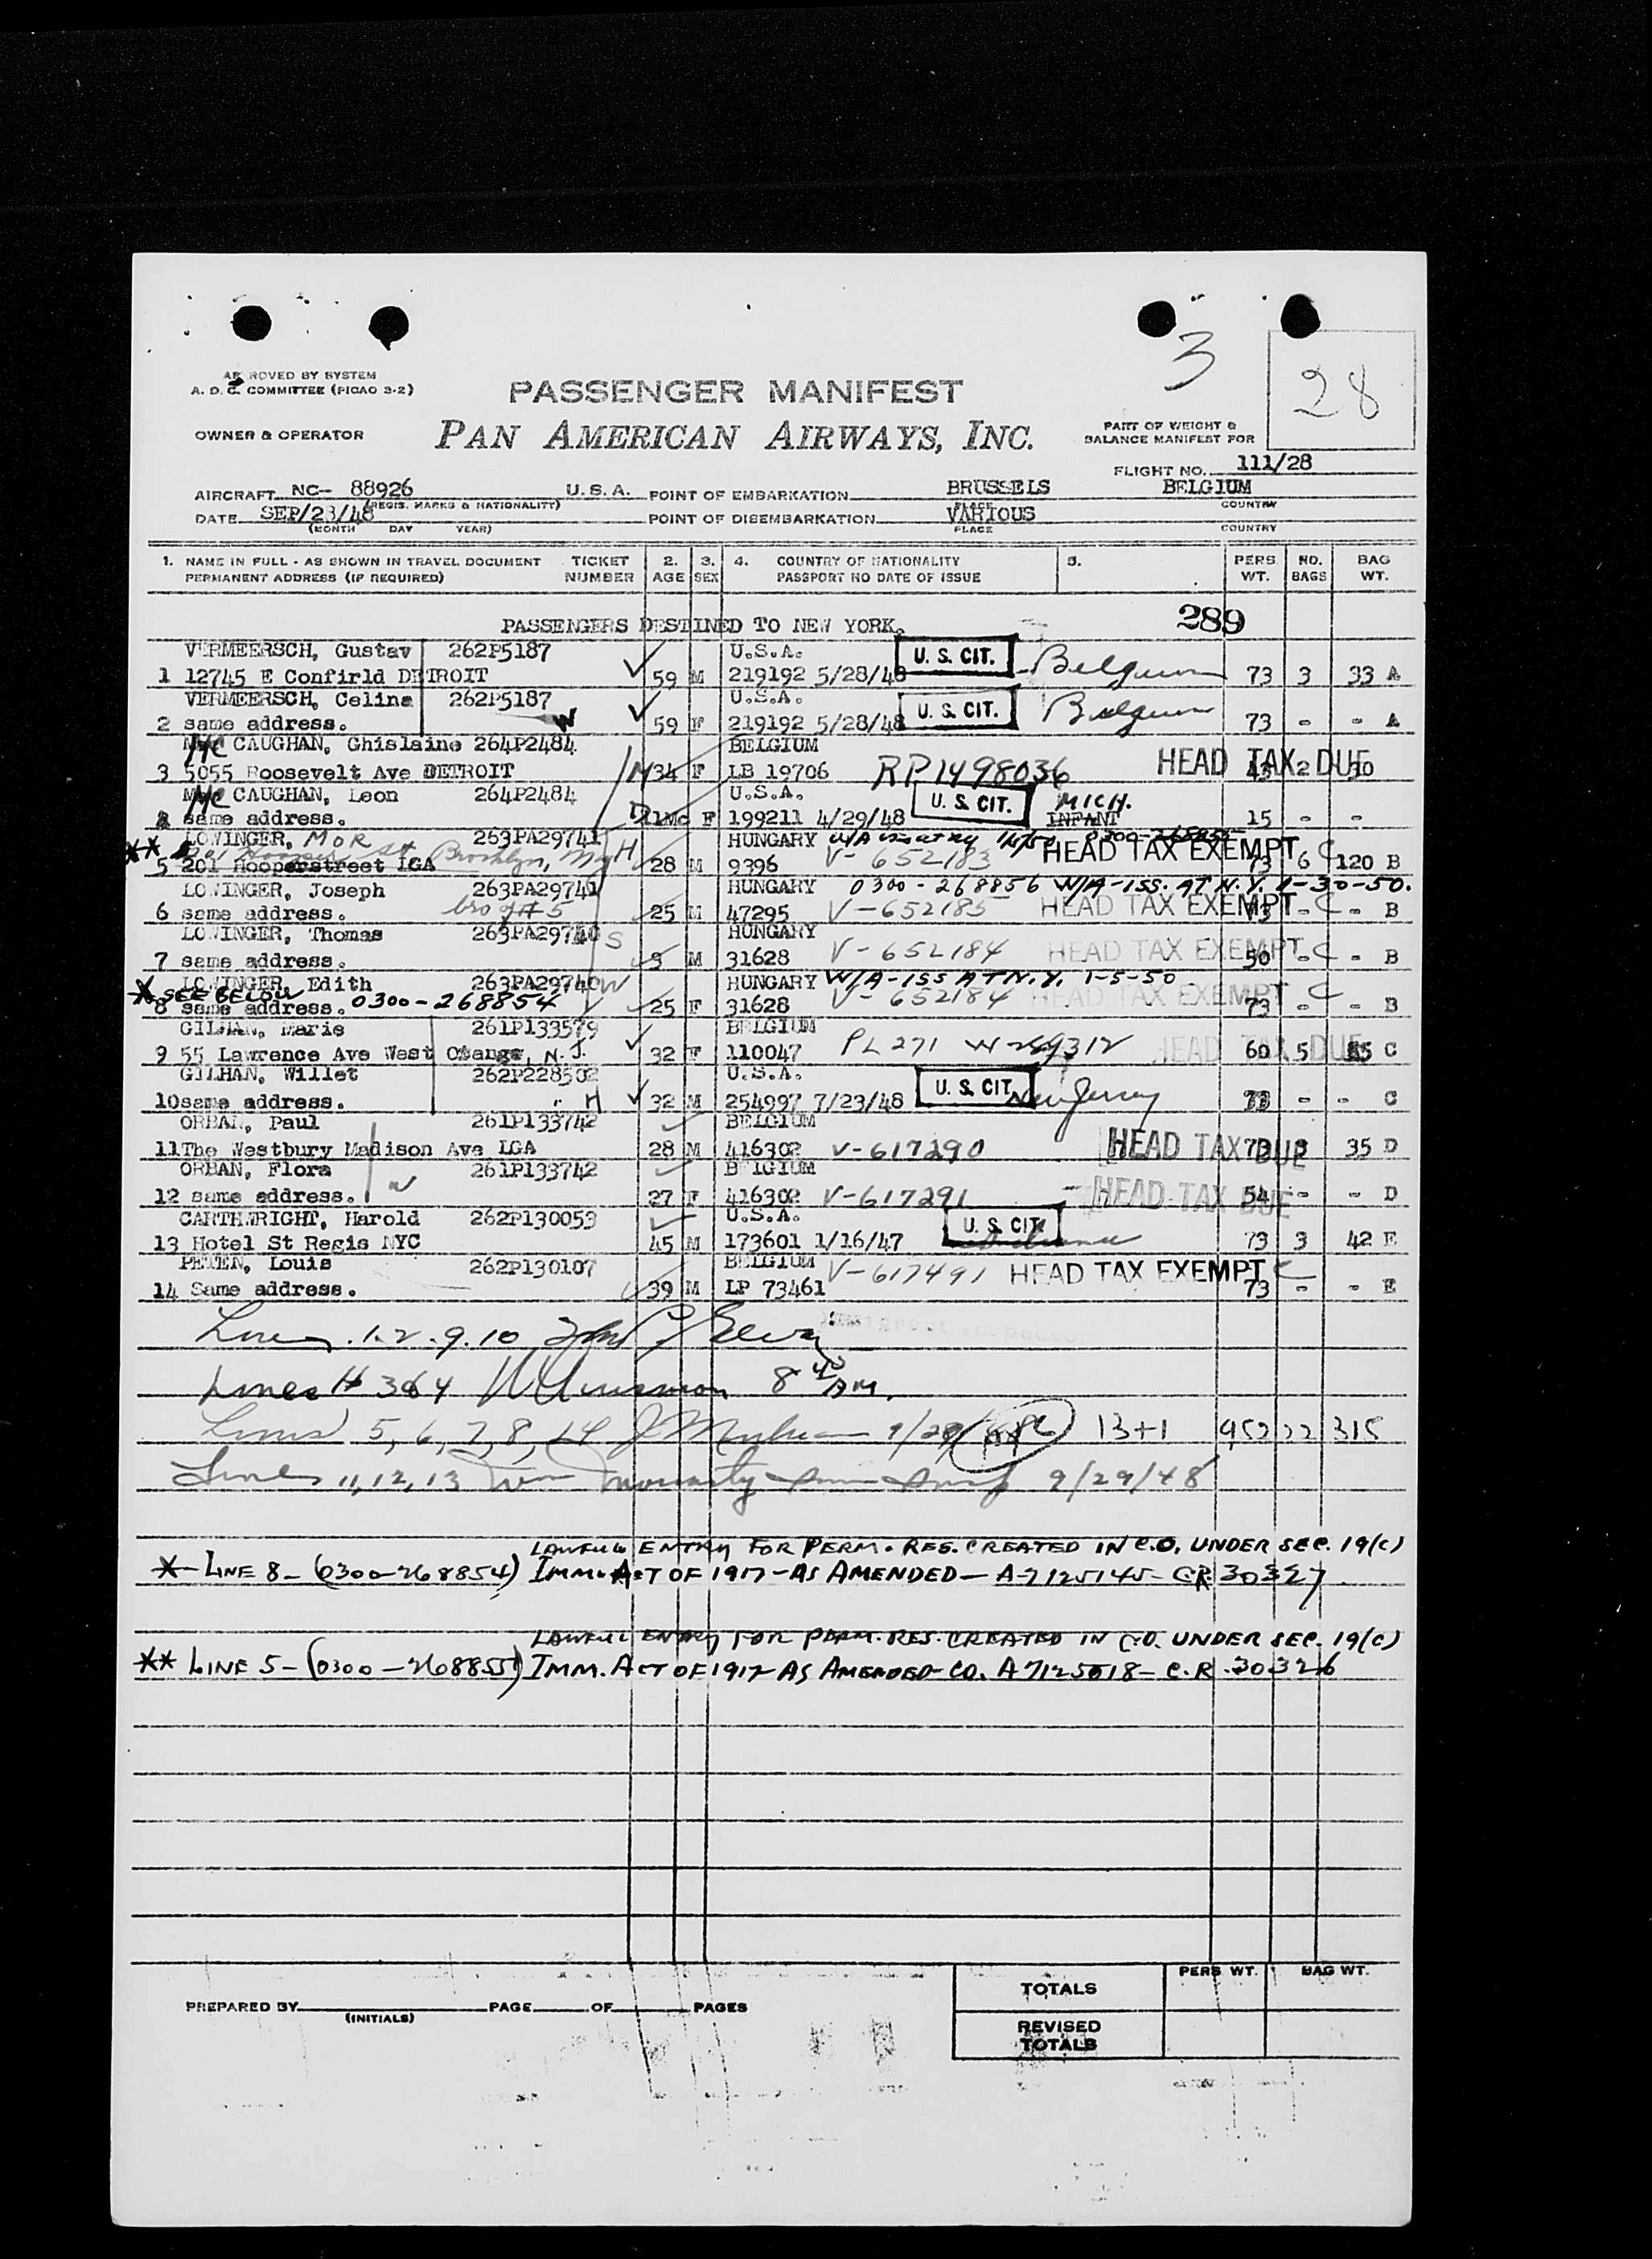 3
28
APPROVED BY SYSTEM
A. D. C. COMMITTEE (PICAO 3-2)
PASSENGER MANIFEST
OWNER & OPERATOR
PAN AMERICAN AIRWAYS, INC.
PART OF WEIGHT &
BALANCE MANIFEST FOR
FLIGHT NO. 111/28
AIRCRAFT NC- 88926 U.S.A. POINT OF EMBARKATION BRUSSELS BELGIUM
(REGIS. MARKS & NATIONALITY) PLACE COUNTRY
DATE SEP/28/48 POINT OF DISEMBARKATION VARIOUS
(MONTH DAY YEAR) PLACE COUNTRY
1. NAME IN FULL - AS SHOWN IN TRAVEL DOCUMENT TICKET 2. 3. 4. COUNTRY OF NATIONALITY 5. PERS NO. BAG
PERMANENT ADDRESS (IF REQUIRED) NUMBER AGE SEX PASSPORT NO DATE OF ISSUE WT. BAGS WT.
PASSENGERS DESTINED TO NEW YORK. 289
VERMEERSCH, Gustav 262P5187 U.S.A. U. S. CIT. Belgium
1 12745 E Confirld DETROIT 59 M 219192 5/28/48 73 3 33 A
VERMEERSCH, Celina 262P5187 U.S.A. U. S. CIT. Belgium
2 same address. W 59 F 219192 5/28/48 73 - - A
Mc CAUGHAN, Ghislaine 264P2484 BELGIUM
3 5055 Roosevelt Ave DETROIT M 34 F LB 19706 RP1498036 HEAD TAX DUE 2
Mc CAUGHAN, Leon 264P2484 U.S.A. U. S. CIT. MICH.
same address. D 11Mo F 199211 4/29/48 INFANT 15 - -
** LOWINGER, MOR 263PA29741 HUNGARY W/A 0300-268855
5 201 Hooperstreet LGA Brooklyn, H 28 M 9396 V-652183 HEAD TAX EXEMPT C 73 6 120 B
LOWINGER, Joseph 263PA29741 HUNGARY 0300-268856 W/A-ISS. AT N.Y. 1-30-50.
6 same address. bro of #5 25 M 47295 V-652185 HEAD TAX EXEMPT C 73 - - B
LOWINGER, Thomas 263PA29740 S HUNGARY
7 same address. M 31628 V-652184 HEAD TAX EXEMPT C 50 - - B
* LOWINGER, Edith 263PA29740 W HUNGARY W/A-ISS AT N.Y. 1-5-50
SEE BELOW
8 same address. 0300-268854 25 F 31628 V-652184 HEAD TAX EXEMPT C 73 - - B
GILHAN, Marie 261P133579 BELGIUM
9 55 Lawrence Ave West Orange, N.J. 32 F 110047 PL 271 HEAD TAX DUE 60 5 85 C
GILHAN, Willet 262P228502 U.S.A. U. S. CIT. New Jersey
10 same address. H 32 M 254997 7/23/48 73 - - C
ORBAN, Paul 261P133742 BELGIUM
11 The Westbury Madison Ave LGA 28 M 416302 V-617290 HEAD TAX DUE 73 3 35 D
ORBAN, Flora 261P133742 BELGIUM
12 same address. W 27 F 416302 V-617291 HEAD TAX DUE 54 - - D
CARTHWRIGHT, Harold 262P130053 U.S.A. U. S. CIT.
13 Hotel St Regis NYC 45 M 173601 1/16/47 73 3 42 E
PETEN, Louis 262P130107 BELGIUM V-617491 HEAD TAX EXEMPT C
14 Same address. 39 M LP 73461 73 - - E
Lines 1.2.9.10 Immigrant Inspector
Lines # 3&4 8 40 AM.
Lines 5, 6, 7, 8, 14 13+1 952 22 315
Lines 11, 12, 13 Wm Moriarty 9/29/48
LAWFUL ENTRY FOR PERM. RES. CREATED IN C.O. UNDER SEC. 19(C)
* - LINE 8 - (0300-268854) IMM. ACT OF 1917 - AS AMENDED - A-7125145 - CR 30327.
LAWFUL ENTRY FOR PERM. RES. CREATED IN C.O. UNDER SEC. 19(C)
** LINE 5 - (0300-268855) IMM. ACT OF 1917 AS AMENDED - CO. A 7125018 - C.R. 30326
PERS WT. BAG WT.
TOTALS
PREPARED BY PAGE OF PAGES
(INITIALS)
REVISED
TOTALS